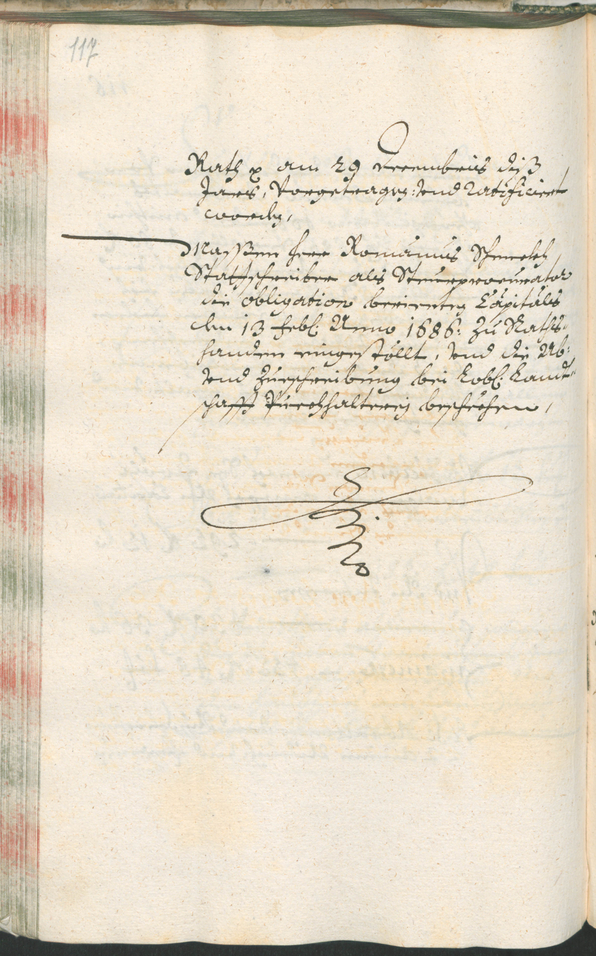 117
Rath p am 29 Decembris diß
Jares, Vorgetragen: vnd ratificiert
worden,
Massen herr Romanus
Stattschreiber als Steurprocurator
die obligation berierten Capitals
den 13 Febl: Anno 1686. Zu Raths
handen eingestöllt, vnd die Ab:
vnd Zueschreibung bei Lobl: Landt
schafft Puechhalterej beschehen,